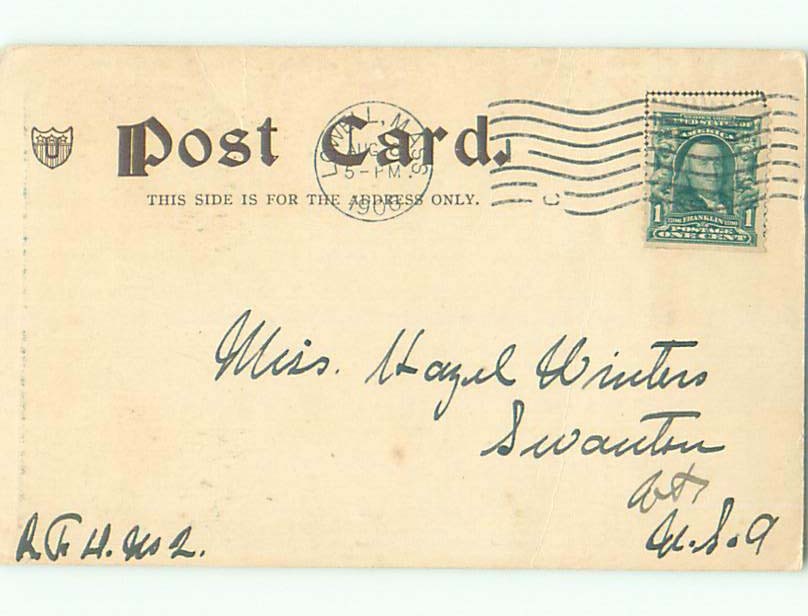 Post Card.
THIS SIDE IS FOR THE ADDRESS ONLY.
LOWELL, MASS
AUG
5-PM
1906
POSTAGE
AMERICA
1 FRANKLIN 1
POSTAGE
ONE CENT
U
Miss. Hazel Winters
Swanton
Vt
U.S.A
R.F.D. No 2.